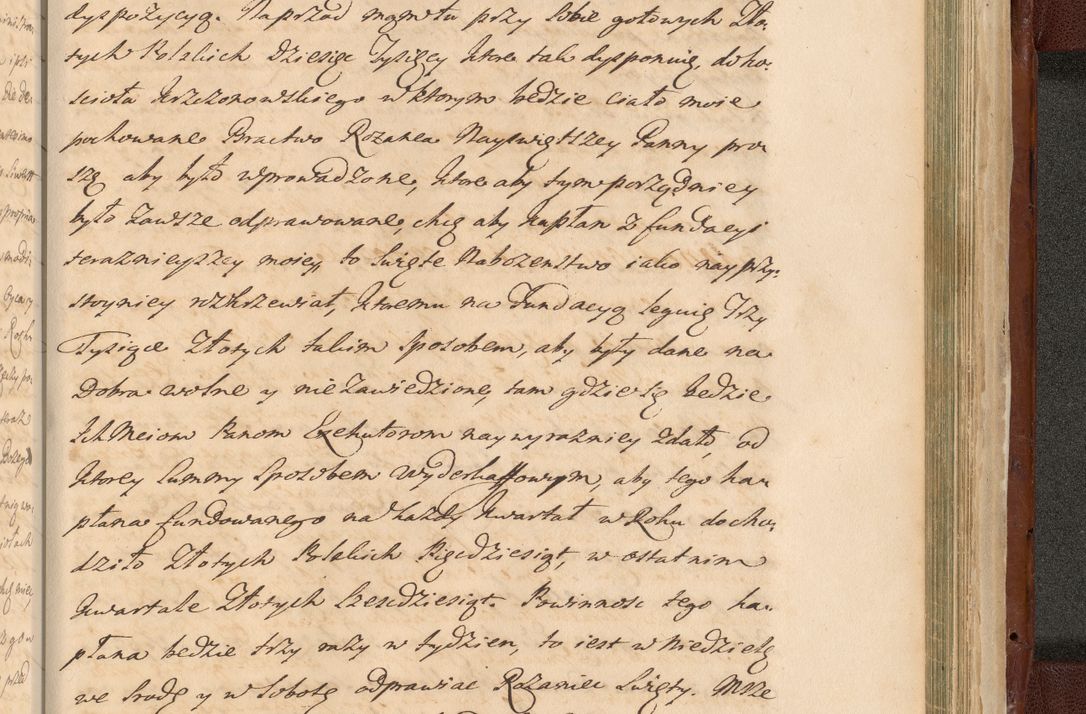 dyspozycyą. Naprzod mąm tu przy sobie gotowych Zło,
tych Polskich Dziesięć Tysięcy, ktore tak dysponuię, do ko,
scioła Krzczonowskiego w ktorym będzie ciało moie
pochowane Bractwo Rozanca Nayswiętszey Panny pro
szę aby było wprowadzone, ktore aby tym porządniey
było zawsze odprawowane, chcę aby kapłan z fundacyi
teraznieyszey moiey, to Swięte Nabozenstwo iako nayprzy,
stoyniey rozkrzewiał, ktoremu na Fundacyą leguię Trzy
Tysiące Złotych takim sposobem, aby były dane na
Dobra wolne y nie zawiedzione, tam gdzie się będzie
Ich Mciom Panom Exekutorom naywyrazniey zdało, od
ktorey summy sposobem wyderkaffowym, aby tego ka,
płana fundowanego na kazdy kwartał w Roku docho,
dziło Złotych Polskich Pięcdziesiąt, w ostatnim
kwartale Złotych Szescdziesiąt. Powinnosc tego ka,
płana będzie trzy razy w tydzien, to iest w Niedzielę
we Srodę y w Sobotę odprawiac Rozaniec Swięty. Msze